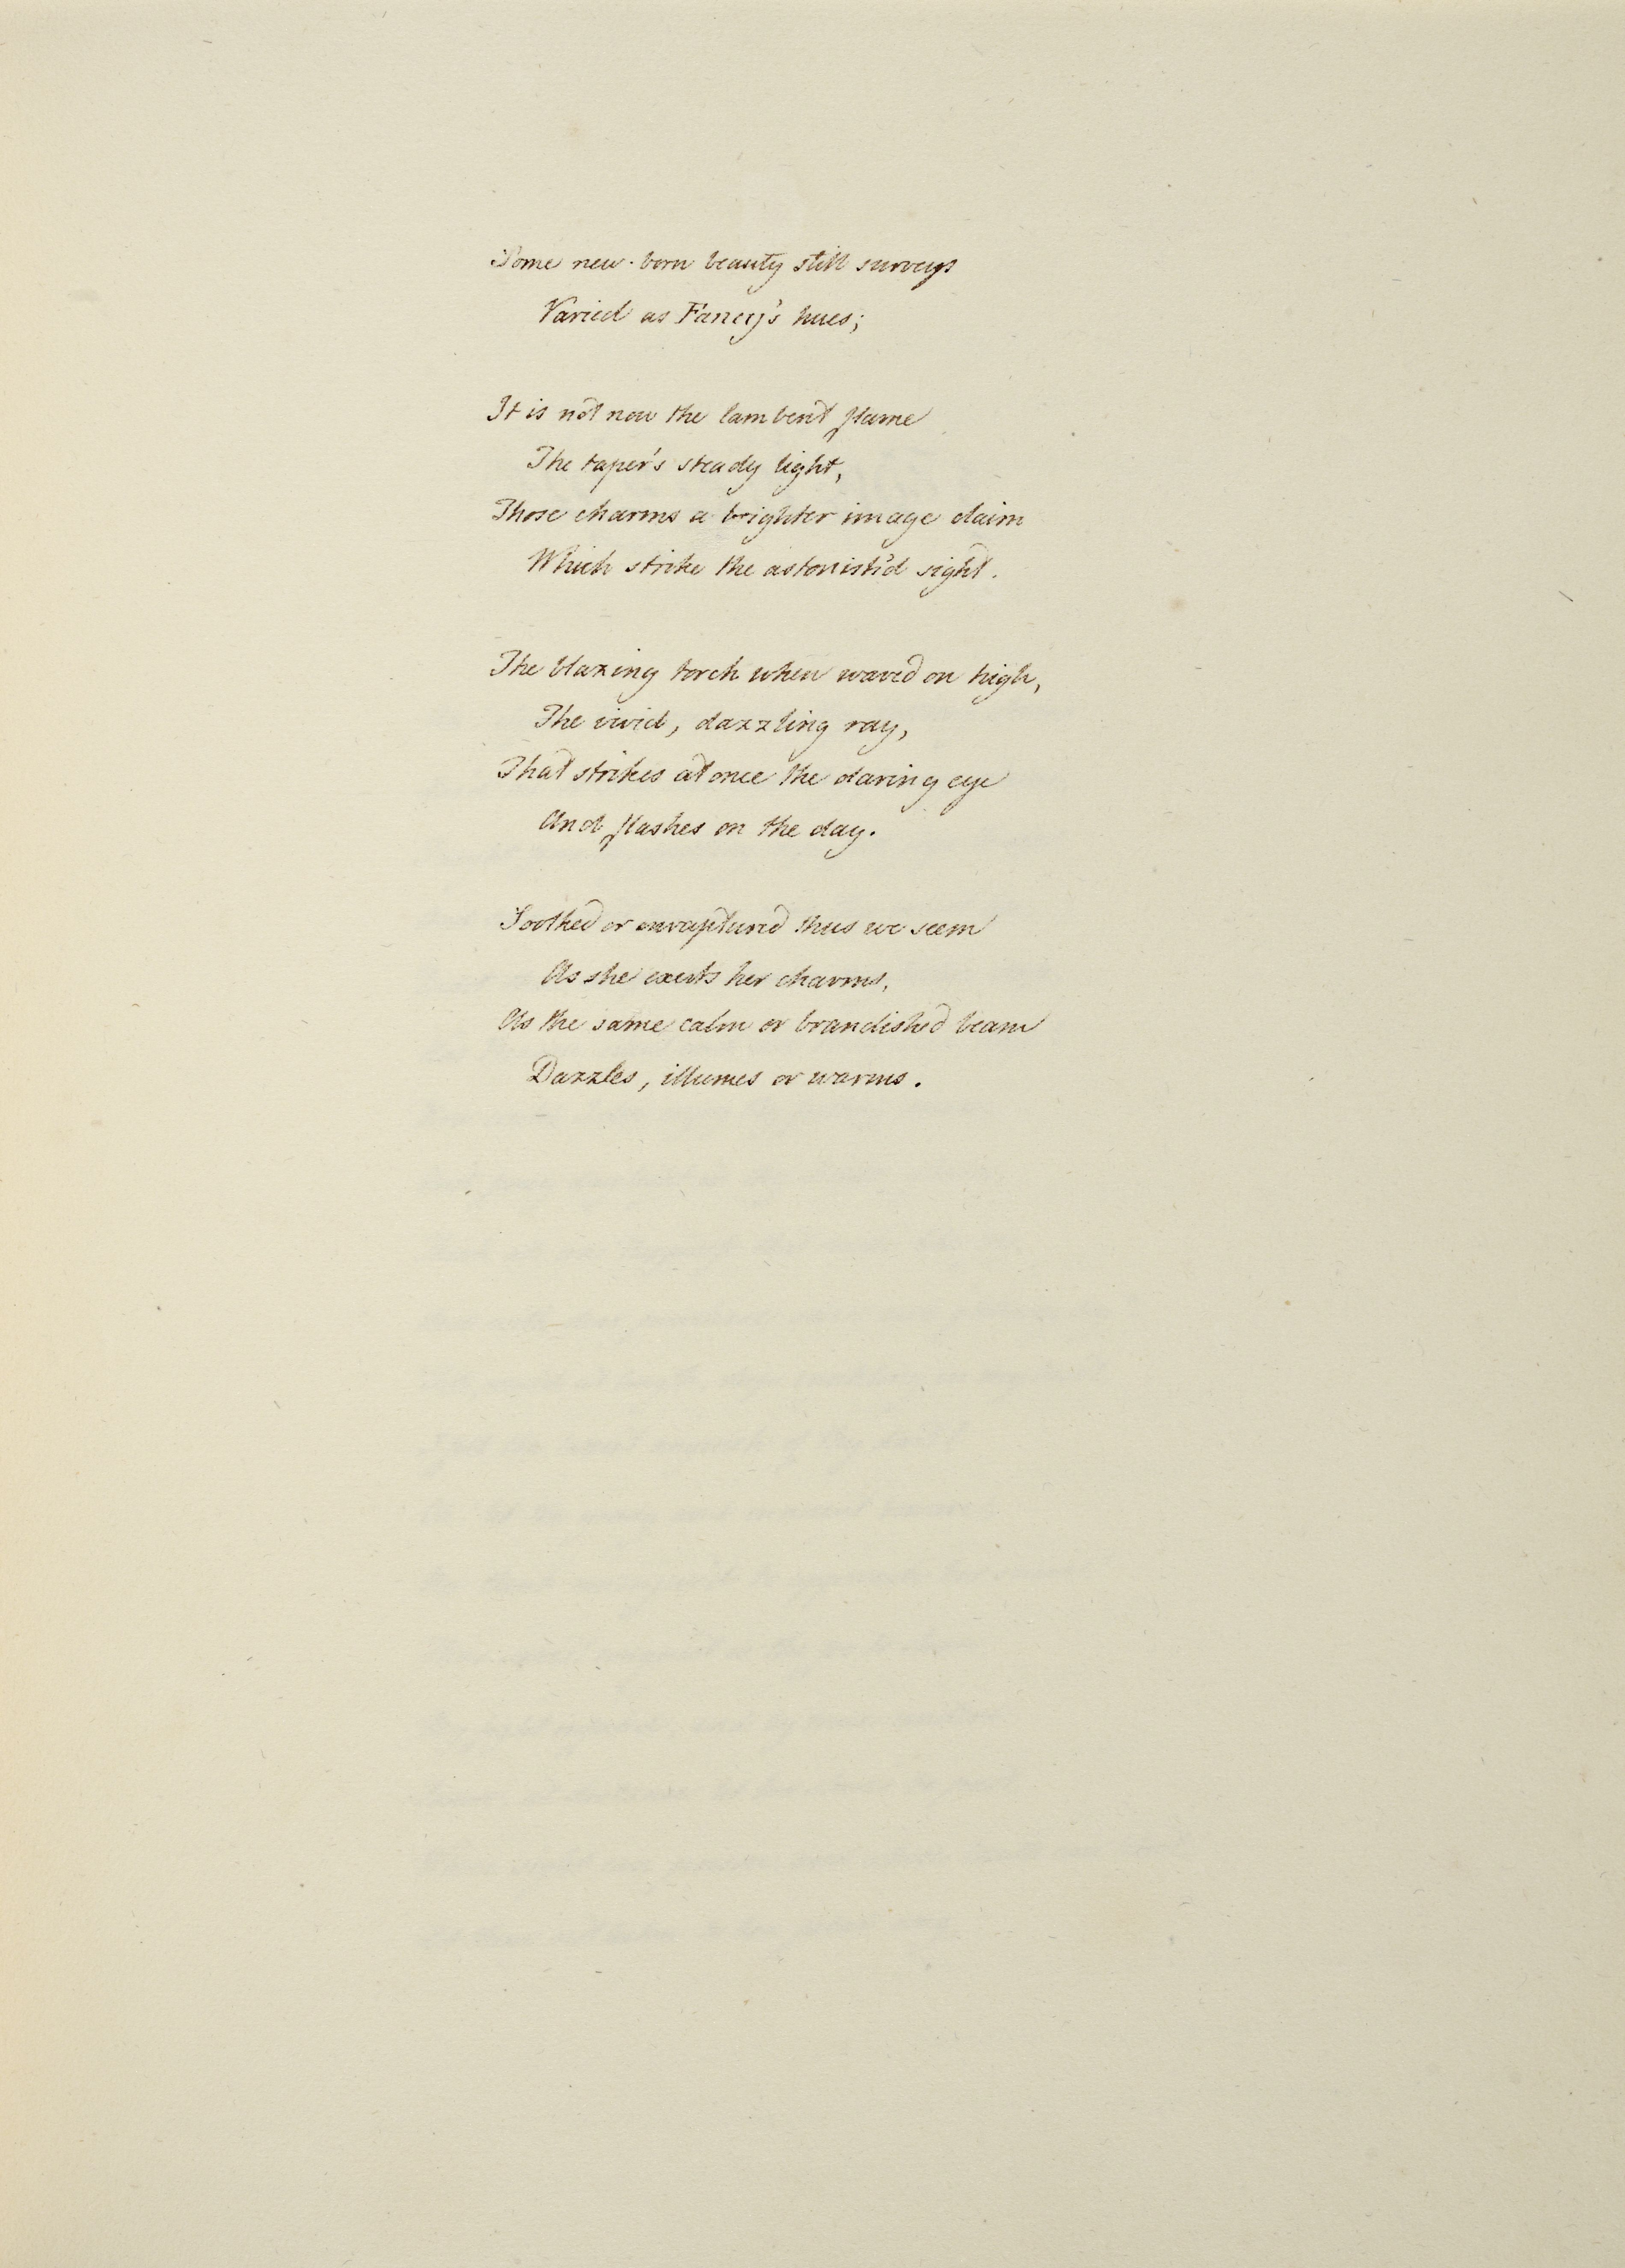 Some new-born beauty still surveys
Varied as Fancy's hues;
It is not now the lambent flame
The taper's steady light,
Those charms a brighter image claim
Which strike the astonish'd sight.
The blazing torch when waved on high,
The vivid, dazzling ray,
That strikes at once the daring eye
And flashes on the day.
Soothed or enraptured thus we seem
As she exerts her charms,
As the same calm or brandished beam
Dazzles, illumes or warms.